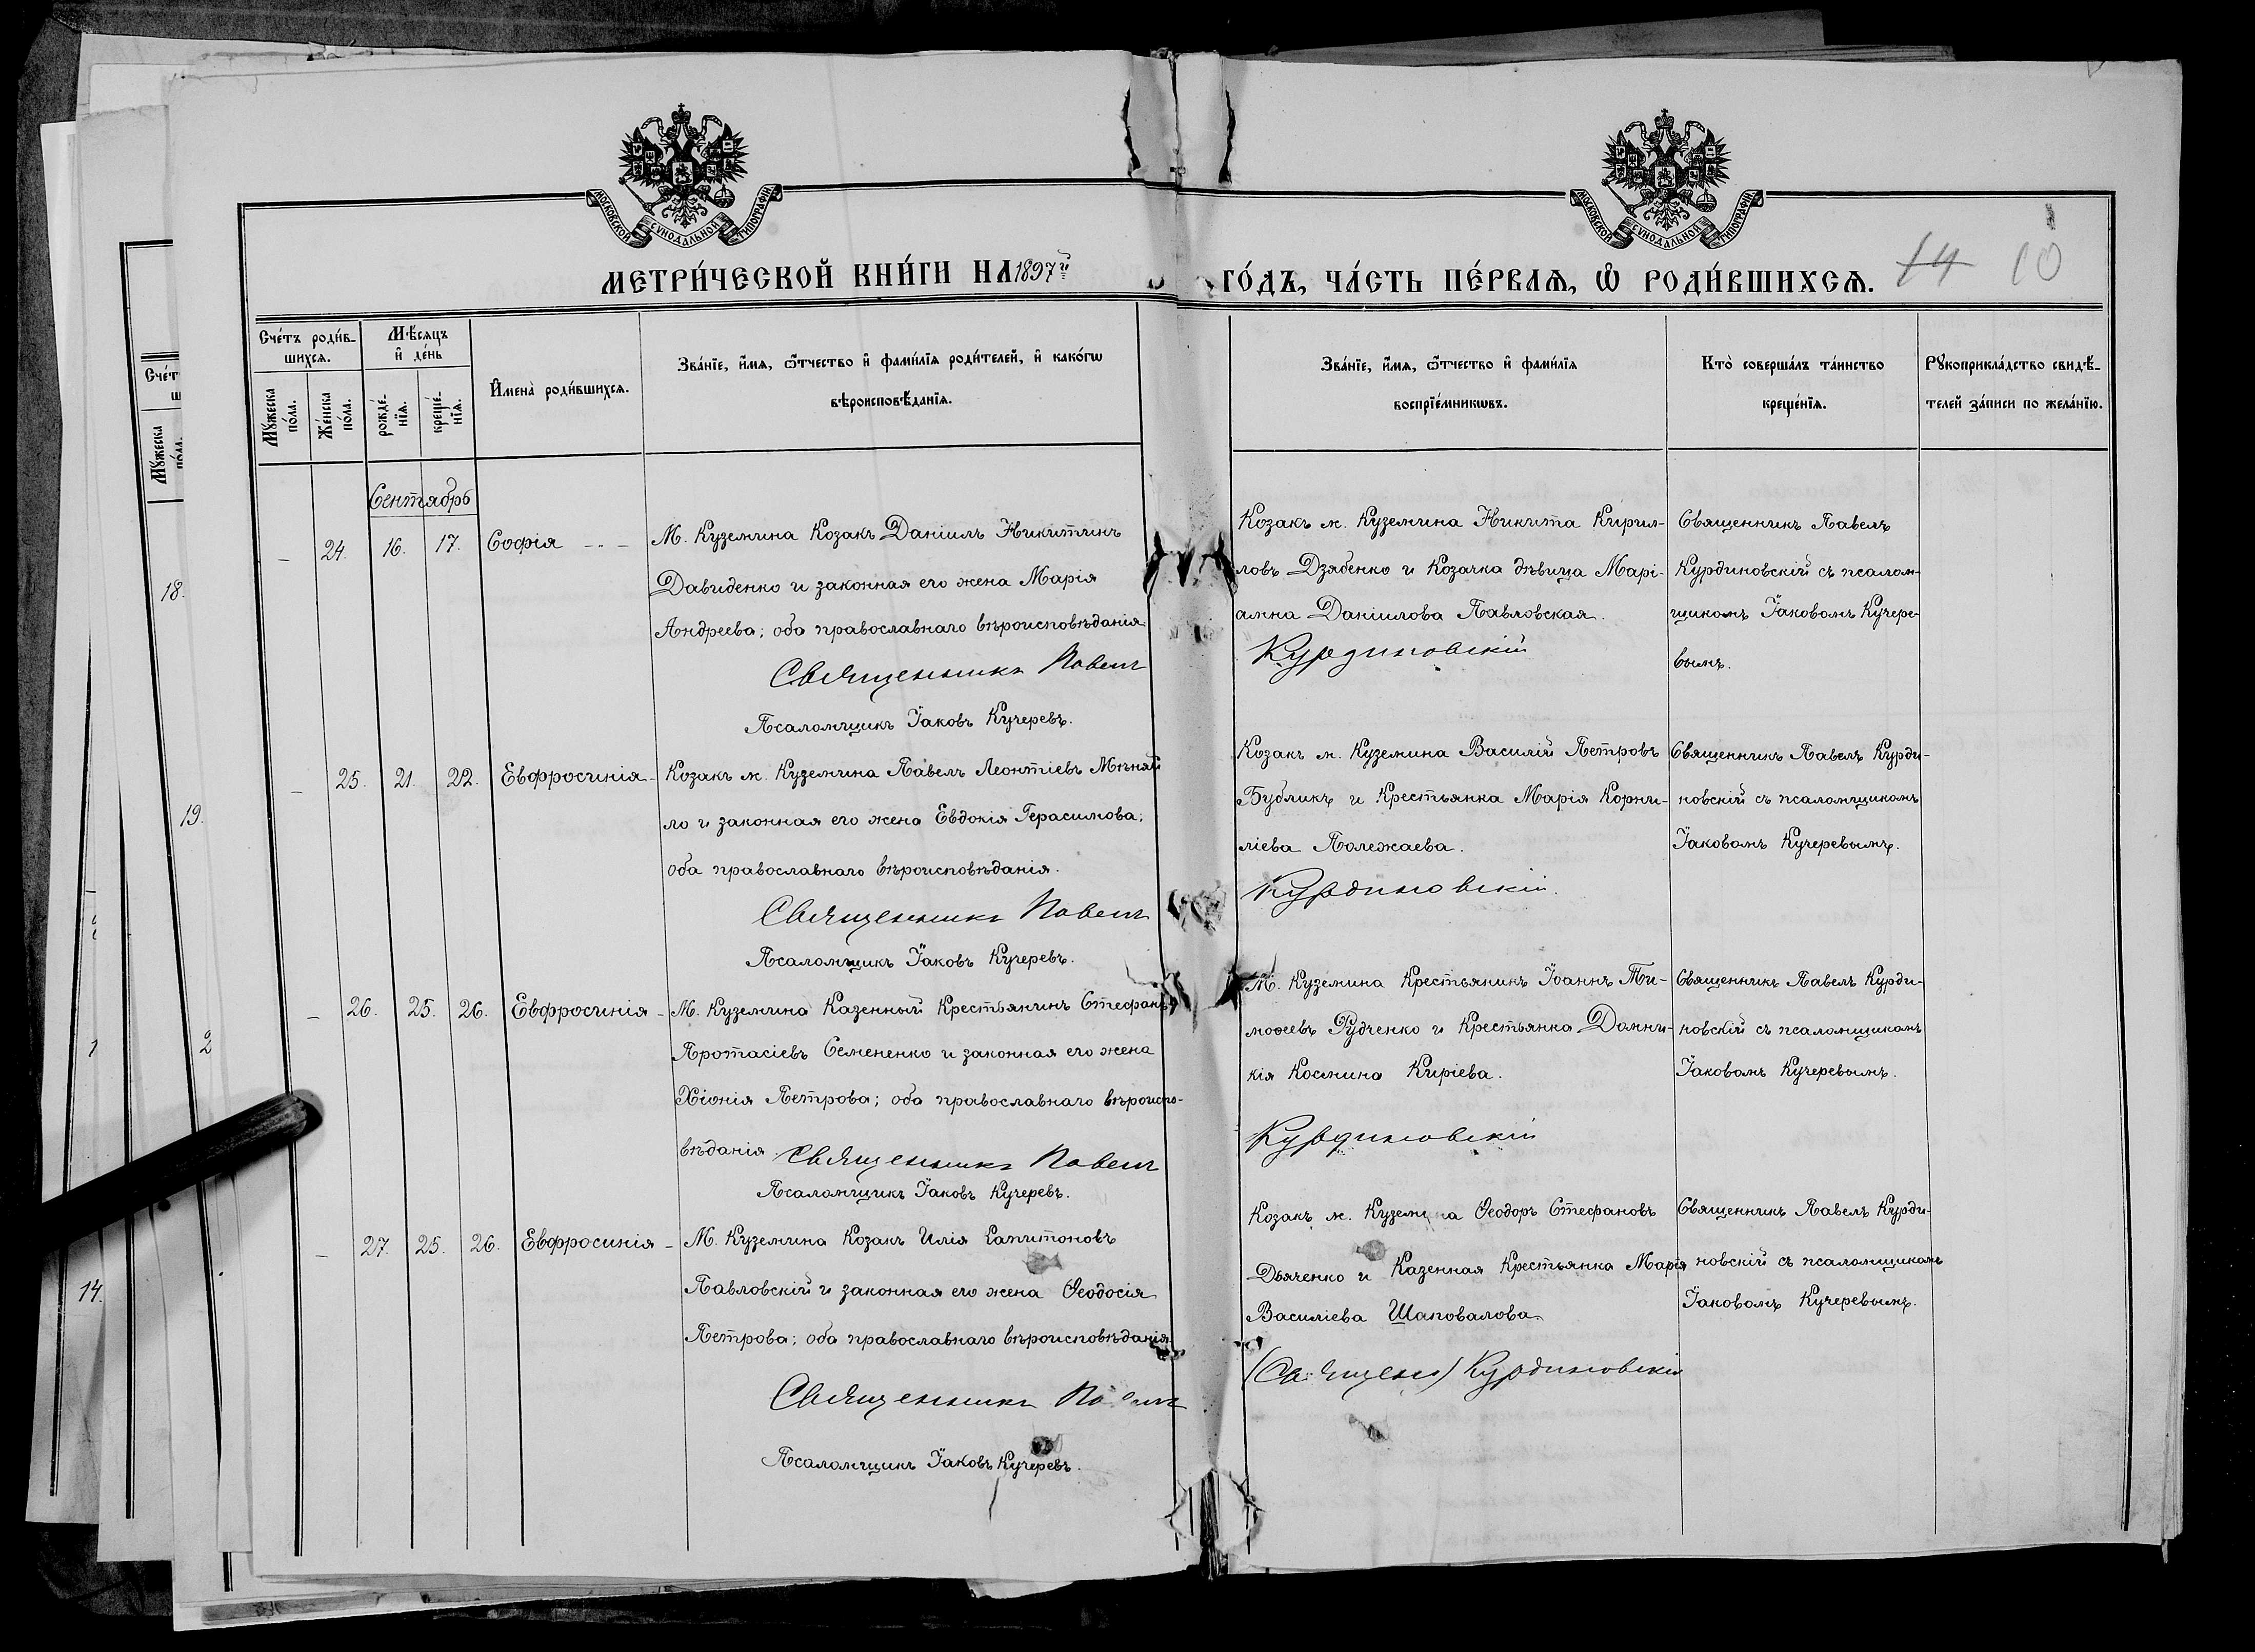 МОСКОВСКОЙ СѴНОДАЛЬНОЙ ТИПОГРАФІИ
МОСКОВСКОЙ СѴНОДАЛЬНОЙ ТИПОГРАФІИ
МЕТРИ́ЧЕСКОЙ КНИ́ГИ НА 1897й ГО́ДЪ, ЧА́СТЬ ПЕ́РВАѦ, Ѽ РОДИ́ВШИХСѦ.
14 10
Сче́тъ роди́в-
шихсѧ.
Мѣ́сѧцъ
и҆ де́нь
Мꙋ́жеска
по́ла.
Же́нска
по́ла.
рожде́-
нїѧ.
креще́-
нїѧ.
И҆мена̀ роди́вшихсѧ.
Зва́нїе, и҆́мѧ, ѻ҆́тчество и҆ фами́лїѧ роди́телей, и҆ како́гѡ
вѣроисповѣ́данїѧ.
Зва́нїе, и҆́мѧ, ѻ҆́тчество и҆ фами́лїѧ
воспрїе́мникѡвъ.
Кто̀ соверша́лъ та́инство
креще́нїѧ.
Рꙋкоприкла́дство свидѣ́-
телей за́писи по жела́нїю.
Сентябрь
— 24. 16. 17. Софія
М. Куземина Козакъ Даніилъ Никитинъ
Давиденко и законная его жена Марія
Андреева; оба православнаго вѣроисповѣданія
Священникъ Павелъ
Псаломщикъ Іаковъ Кучеревъ.
Козакъ м. Куземина Никита Кирил-
ловъ Дзябенко и Козачка дѣвица Марі-
амна Даніилова Павловская.
Курдиновскій
Священникъ Павелъ
Курдиновскій съ псалом-
щикомъ Іаковомъ Кучере-
вымъ.
— 25. 21. 22. Евфросинія
Козакъ м. Куземина Павелъ Леонтіевъ Мѣняй
ло и законная его жена Евдокія Герасимова;
оба православнаго вѣроисповѣданія.
Священникъ Павелъ
Псаломщикъ Іаковъ Кучеревъ.
Козакъ м. Куземина Василій Петровъ
Бубликъ и Крестьянка Марія Корни-
ліева Полежаева.
Курдиновскій.
Священникъ Павелъ Курди-
новскій съ псаломщикомъ
Іаковомъ Кучеревымъ.
— 26. 25. 26. Евфросинія
М. Куземина Казенный Крестьянинъ Стефанъ
Протасіевъ Семененко и законная его жена
Хіонія Петрова; оба православнаго вѣроиспо-
вѣданія Священникъ Павелъ
Псаломщикъ Іаковъ Кучеревъ.
М. Куземина Крестьянинъ Іоаннъ Ти-
моѳеевъ Рудченко и Крестьянка Домни-
кія Космина Киріева.
Курдиновскій
Священникъ Павелъ Курди-
новскій съ псаломщикомъ
Іаковомъ Кучеревымъ.
— 27. 25. 26. Евфросинія
М. Куземина Козакъ Илія Капитоновъ
Павловскій и законная его жена Ѳеодосія
Петрова; оба православнаго вѣроисповѣданія.
Священникъ Павелъ
Псаломщикъ Іаковъ Кучеревъ.
Козакъ м. Куземина Ѳеодоръ Стефановъ
Дьяченко и Казенная Крестьянка Марія
Василіева Шаповалова.
Курдиновскій
Священникъ Павелъ Курди-
новскій съ псаломщикомъ
Іаковомъ Кучеревымъ.
18.
19.
2
1
14.